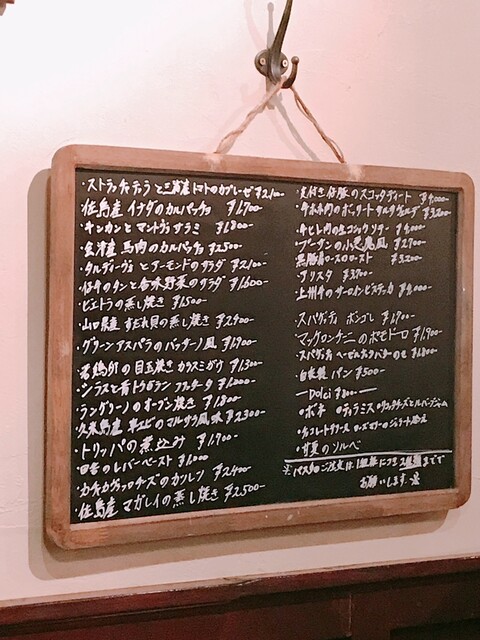 ・ストラッチャテッラと三浦産トマトのカプレーゼ ¥2,100-
佐島産 イナダのカルパッチョ ¥1,700-
・キンカンとマントヴァサラミ ¥1,800-
・会津産 馬肉のカルパッチョ ¥2,500-
・タルディーヴォとアーモンドのサラダ ¥2,100-
・仔牛のタンと香味野菜のサラダ ¥1,600-
・ビエトラの蒸し焼き ¥1,500-
・山口県産 すだれ貝の蒸し焼き ¥2,900-
・グリーンアスパラのバッサーノ風 ¥1,900-
・若鶏卵の目玉焼き カラスミガケ ¥1,300-
・シラスと青トウガラシ フリッタータ ¥1,000-
・ラングリーノのオーブン焼き ¥1,800-
久米島産 車エビのマルサラ風味 ¥2,300-
・トリッパの煮込み ¥1,900-
・田舎のレバーペースト ¥1,000-
・カチョカヴァッロチーズの ¥2,400-
・佐島産 マガレイの蒸し焼き ¥2,500-
・骨付き仔豚のスコッタディート ¥4,000-
・牛ホホ肉のボッリート サルサヴェルデ ¥3,200-
・牛ヒレ肉の ソテー ¥4,000-
・ブーダンの小悪魔風 ¥2,900-
黒豚肩ロースのロースト ¥3,200-
・アリスタ ¥3,900-
・上州牛のサーロインビステッカ ¥8,000-
・スパゲッティ ボンゴレ ¥1,900-
・マッケロンチーニのポモドーロ ¥1,900-
・スパゲッティ ¥1,800-
・自家製 パン ¥500-
-Dolci ¥800-
・ボネ ・ティラミス
・チョコレートタルト ローズマリーのジェラート添え
・甘夏のソルベ
※パスタのご注文は1組様につき2種類までで
お願いします。